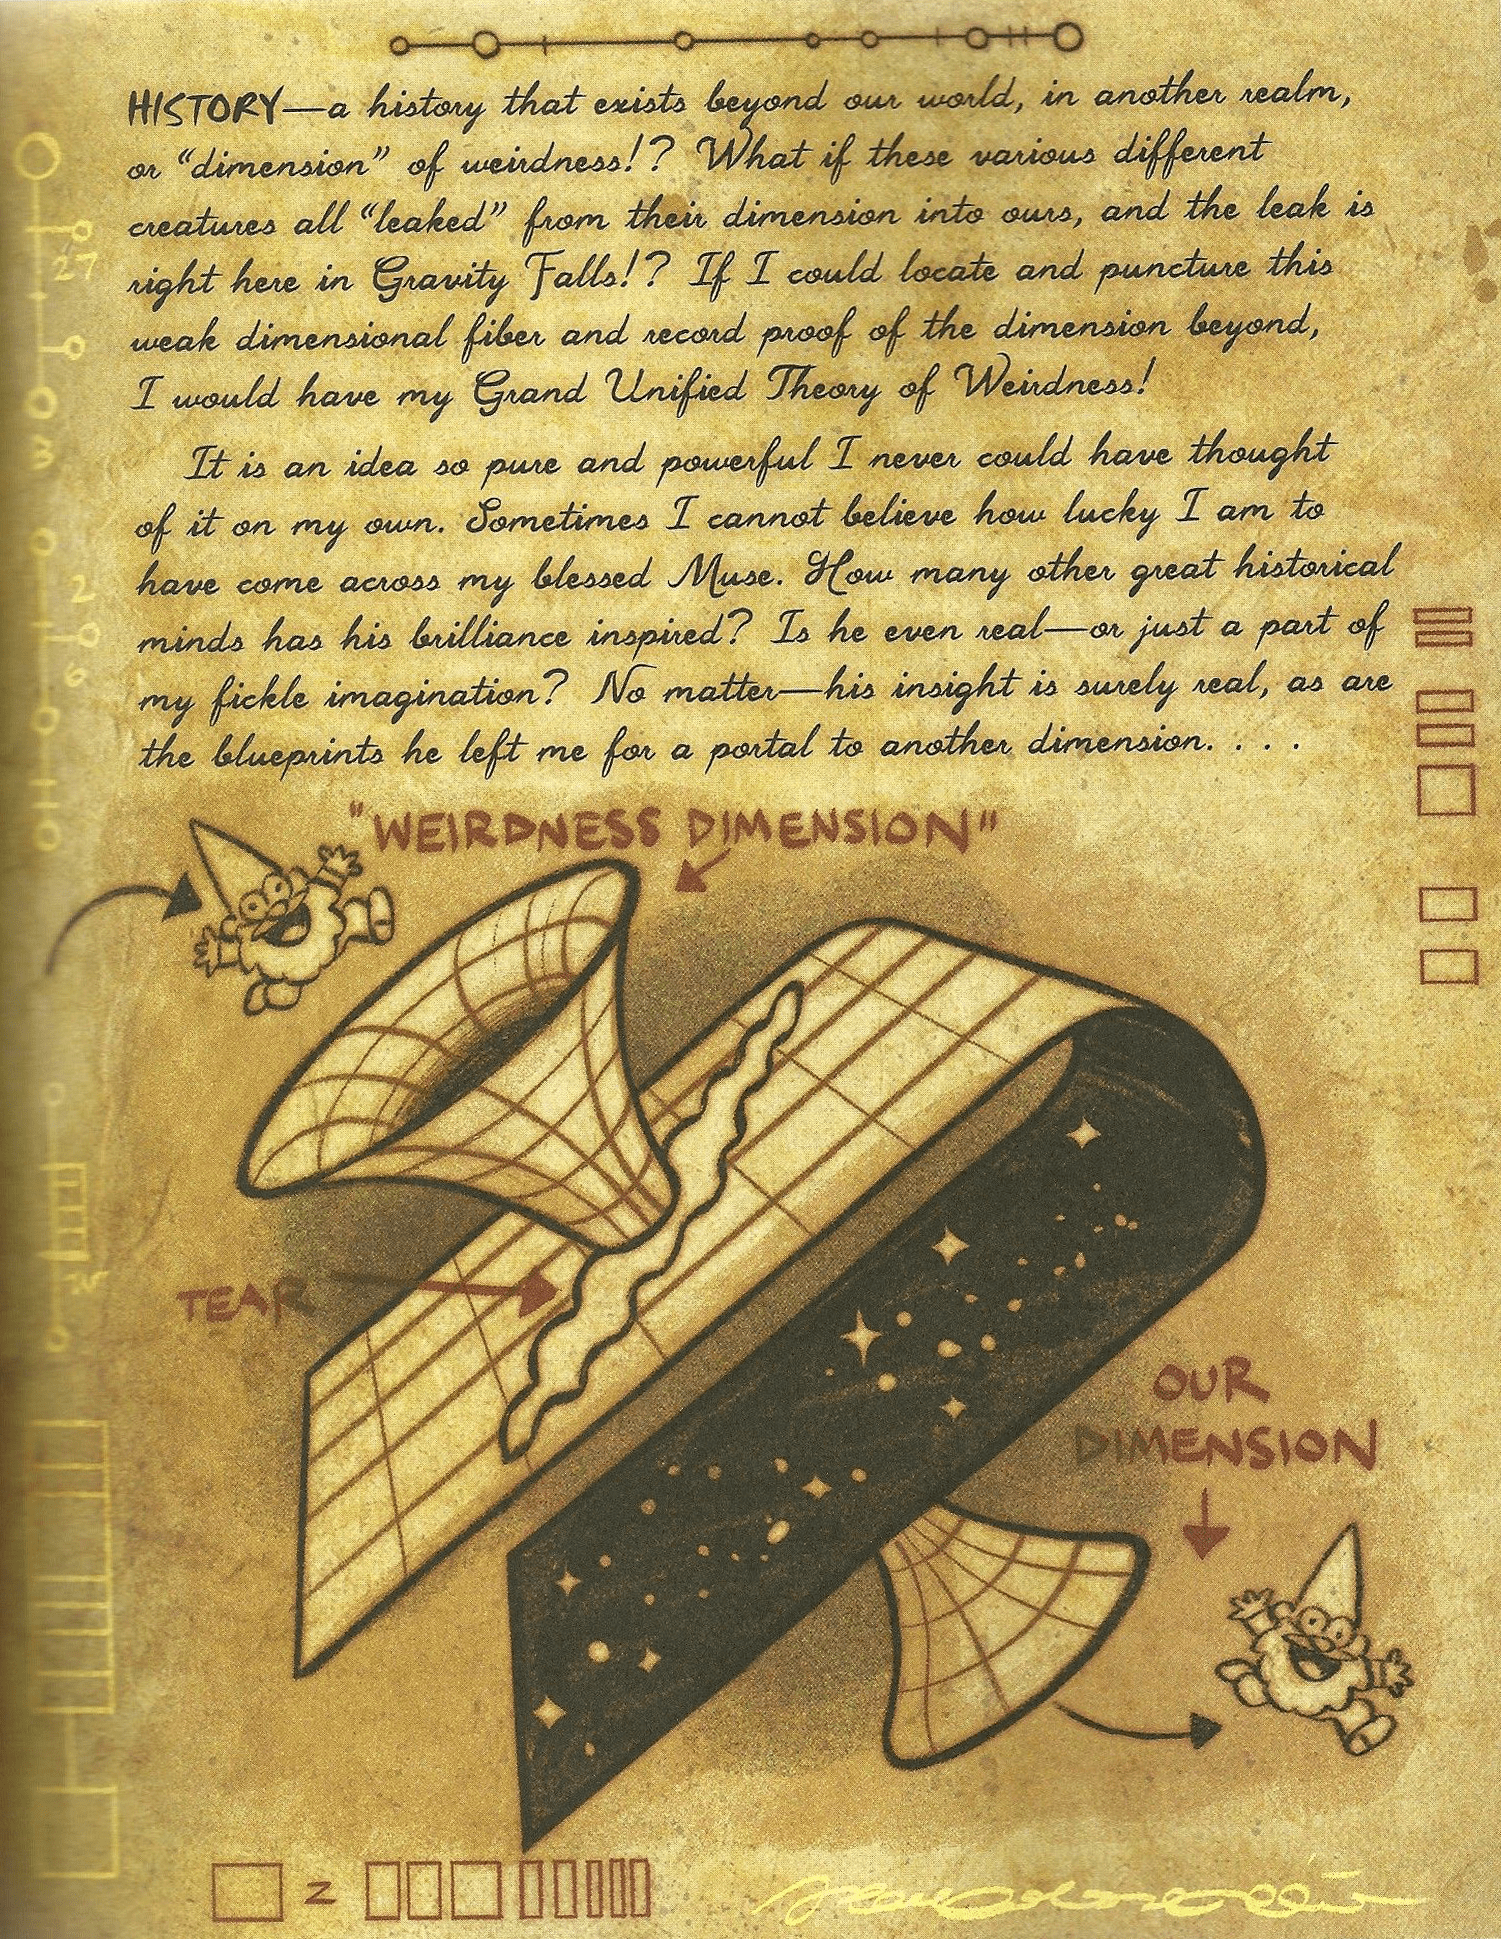 HISTORY—a history that exists beyond our world, in another realm,
or “dimension” of weirdness!? What if these various different
creatures all “leaked” from their dimension into ours, and the leak is
right here in Gravity Falls!? If I could locate and puncture this
weak dimensional fiber and record proof of the dimension beyond,
I would have my Grand Unified Theory of Weirdness!
It is an idea so pure and powerful I never could have thought
of it on my own. Sometimes I cannot believe how lucky I am to
have come across my blessed Muse. How many other great historical
minds has his brilliance inspired? Is he even real—or just a part of
my fickle imagination? No matter—his insight is surely real, as are
the blueprints he left me for a portal to another dimension. . . .
"WEIRDNESS DIMENSION"
TEAR
OUR
DIMENSION
27
2
z